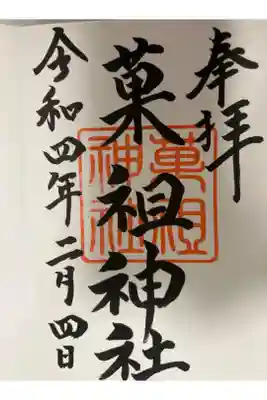 奉拝
菓祖神社
菓祖
神社
令和四年二月四日